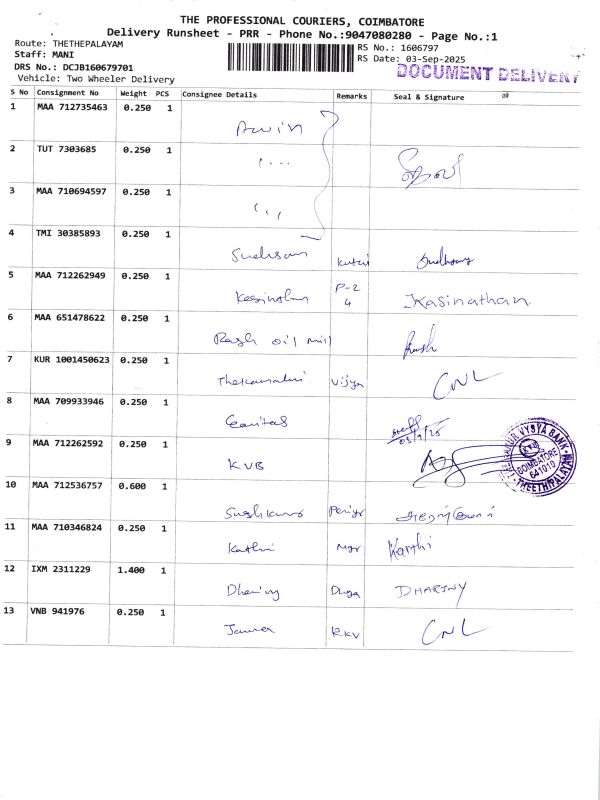 THE PROFESSIONAL COURIERS, COIMBATORE
Delivery Runsheet - PRR - Phone No.:9047080280 - Page No.:1
Route: THETHEPALAYAM
Staff: MANI
DRS No.: DCJB160679701
Vehicle: Two Wheeler Delivery
RS No.: 1606797
RS Date: 03-Sep-2025
DOCUMENT DELIVERY
S No Consignment No Weight PCS Consignee Details Remarks Seal & Signature
1 MAA 712735463 0.250 1
Arvin
2 TUT 7303685 0.250 1
3 MAA 710694597 0.250 1
4 TMI 30385893 0.250 1
5 MAA 712262949 0.250 1
Kasinathan P-2 4 Kasinathan
6 MAA 651478622 0.250 1
oil mill
7 KUR 1001450623 0.250 1
Vijya CNL
8 MAA 709933946 0.250 1
Caritas 03/9/25
9 MAA 712262592 0.250 1
KVB
THE KARUR VYSYA BANK
KVB
COIMBATORE
641010
THEETHIPALAYAM
10 MAA 712536757 0.600 1
11 MAA 710346824 0.250 1
Kathi Mgr Karthi
12 IXM 2311229 1.400 1
Durga DHARINY
13 VNB 941976 0.250 1
RKV CNL